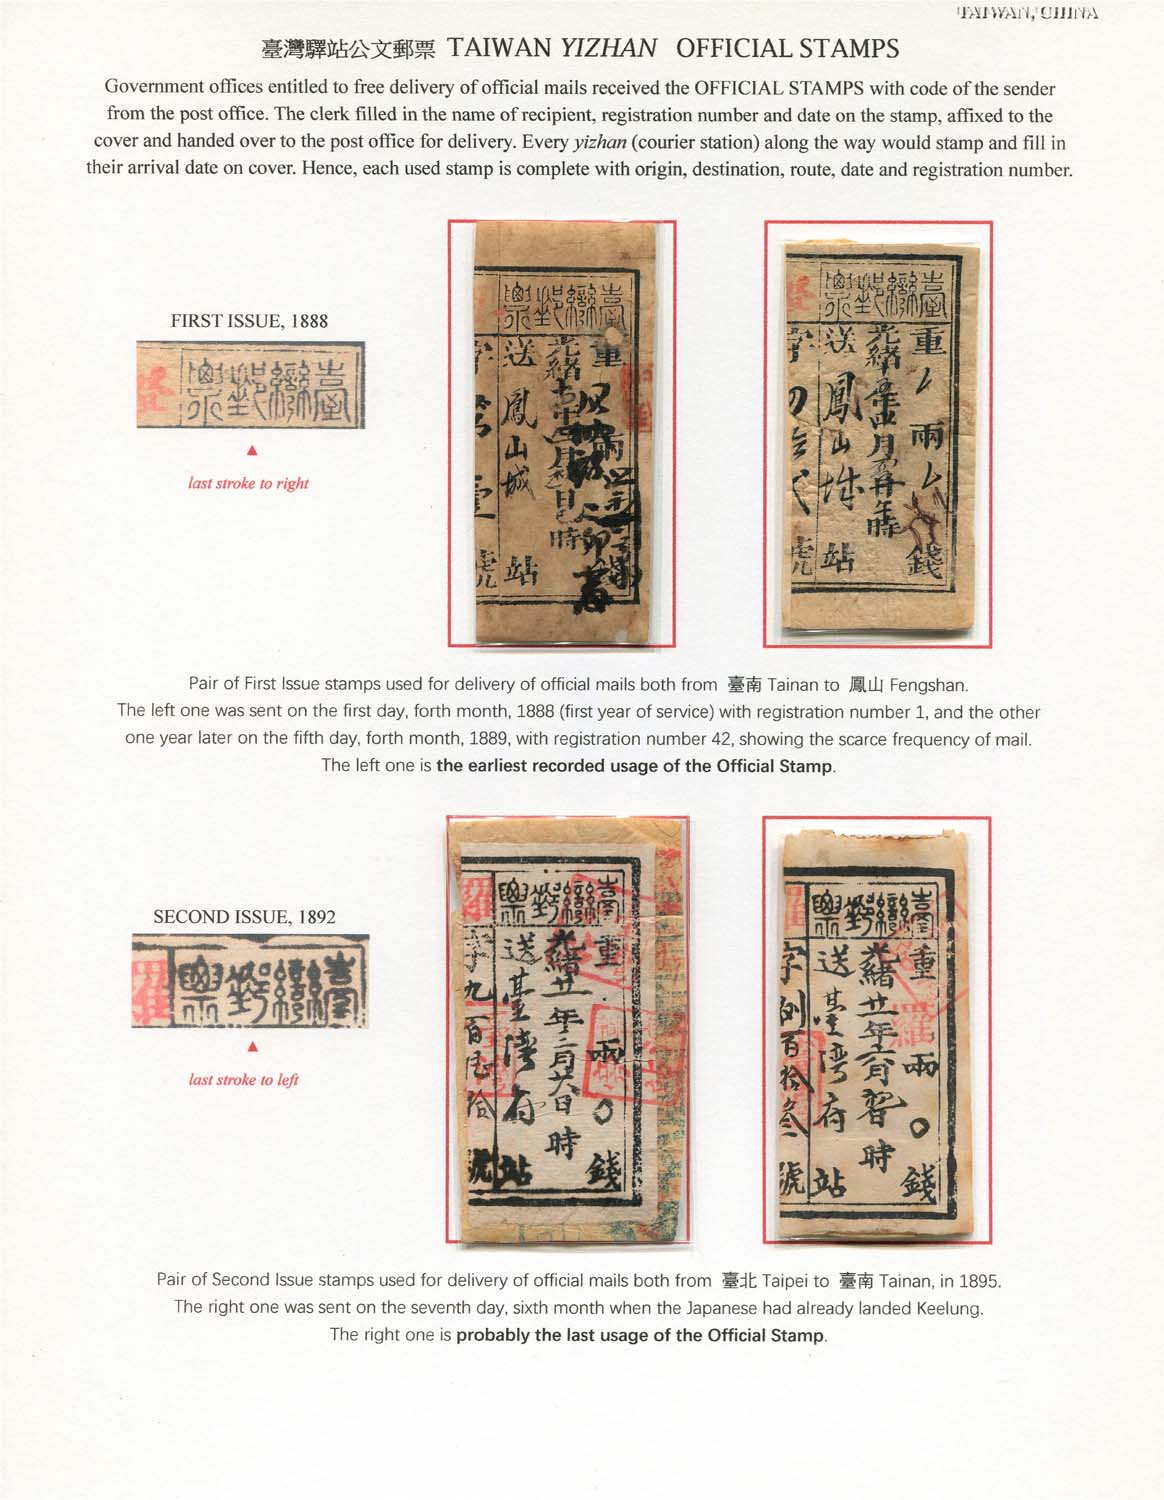 TAIWAN, CHINA
臺灣驛站公文郵票 TAIWAN YIZHAN OFFICIAL STAMPS
Government offices entitled to free delivery of official mails received the OFFICIAL STAMPS with code of the sender
from the post office. The clerk filled in the name of recipient, registration number and date on the stamp, affixed to the
cover and handed over to the post office for delivery. Every yizhan (courier station) along the way would stamp and fill in
their arrival date on cover. Hence, each used stamp is complete with origin, destination, route, date and registration number.
FIRST ISSUE, 1888
臺灣郵票
last stroke to right
臺灣郵票
重
兩
錢
光緒
時
送鳳山城站
臺灣郵票
重
兩
錢
光緒
時
送鳳山城站
Pair of First Issue stamps used for delivery of official mails both from 臺南 Tainan to 鳳山 Fengshan.
The left one was sent on the first day, forth month, 1888 (first year of service) with registration number 1, and the other
one year later on the fifth day, forth month, 1889, with registration number 42, showing the scarce frequency of mail.
The left one is the earliest recorded usage of the Official Stamp.
SECOND ISSUE, 1892
臺灣郵票
last stroke to left
臺灣郵票
重 兩 〇 錢
光緒廿一年
時
送臺灣府站
臺灣郵票
重 兩 〇 錢
光緒廿一年六月
時
送臺灣府站
Pair of Second Issue stamps used for delivery of official mails both from 臺北 Taipei to 臺南 Tainan, in 1895.
The right one was sent on the seventh day, sixth month when the Japanese had already landed Keelung.
The right one is probably the last usage of the Official Stamp.